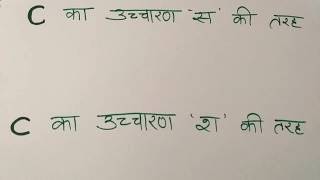 C का उच्चारण 'स' की तरह
C का उच्चारण 'श' की तरह